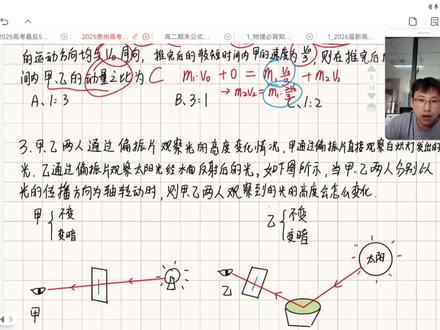 2025高考最后5...
2025贵州高考...
高二期末公式...
1_物理必背知...
1_2026届新高...
的运动方向均与V₀同向,推免后的较短时间内甲的速度为V₀/3,则在推免后的
间内甲、乙的动量之比为 C m₁·V₀ + 0 = m₁·V₀/3 + m₂V₂
→ m₂V₂ = m₁·2V₀/3
A、1:3 B、3:1 C、1:2
3.甲、乙两人通过偏振片观察光的亮度变化情况,甲通过偏振片直接观察白炽灯发出的
光,乙通过偏振片观察太阳光经水面反射后的光,如下图所示,当甲、乙两人分别以
光的传播方向为轴转动时,则甲、乙两人观察到的光的亮度会怎么变化.
甲 { 不变
变暗
乙 { 不变
变暗
太阳
甲
乙